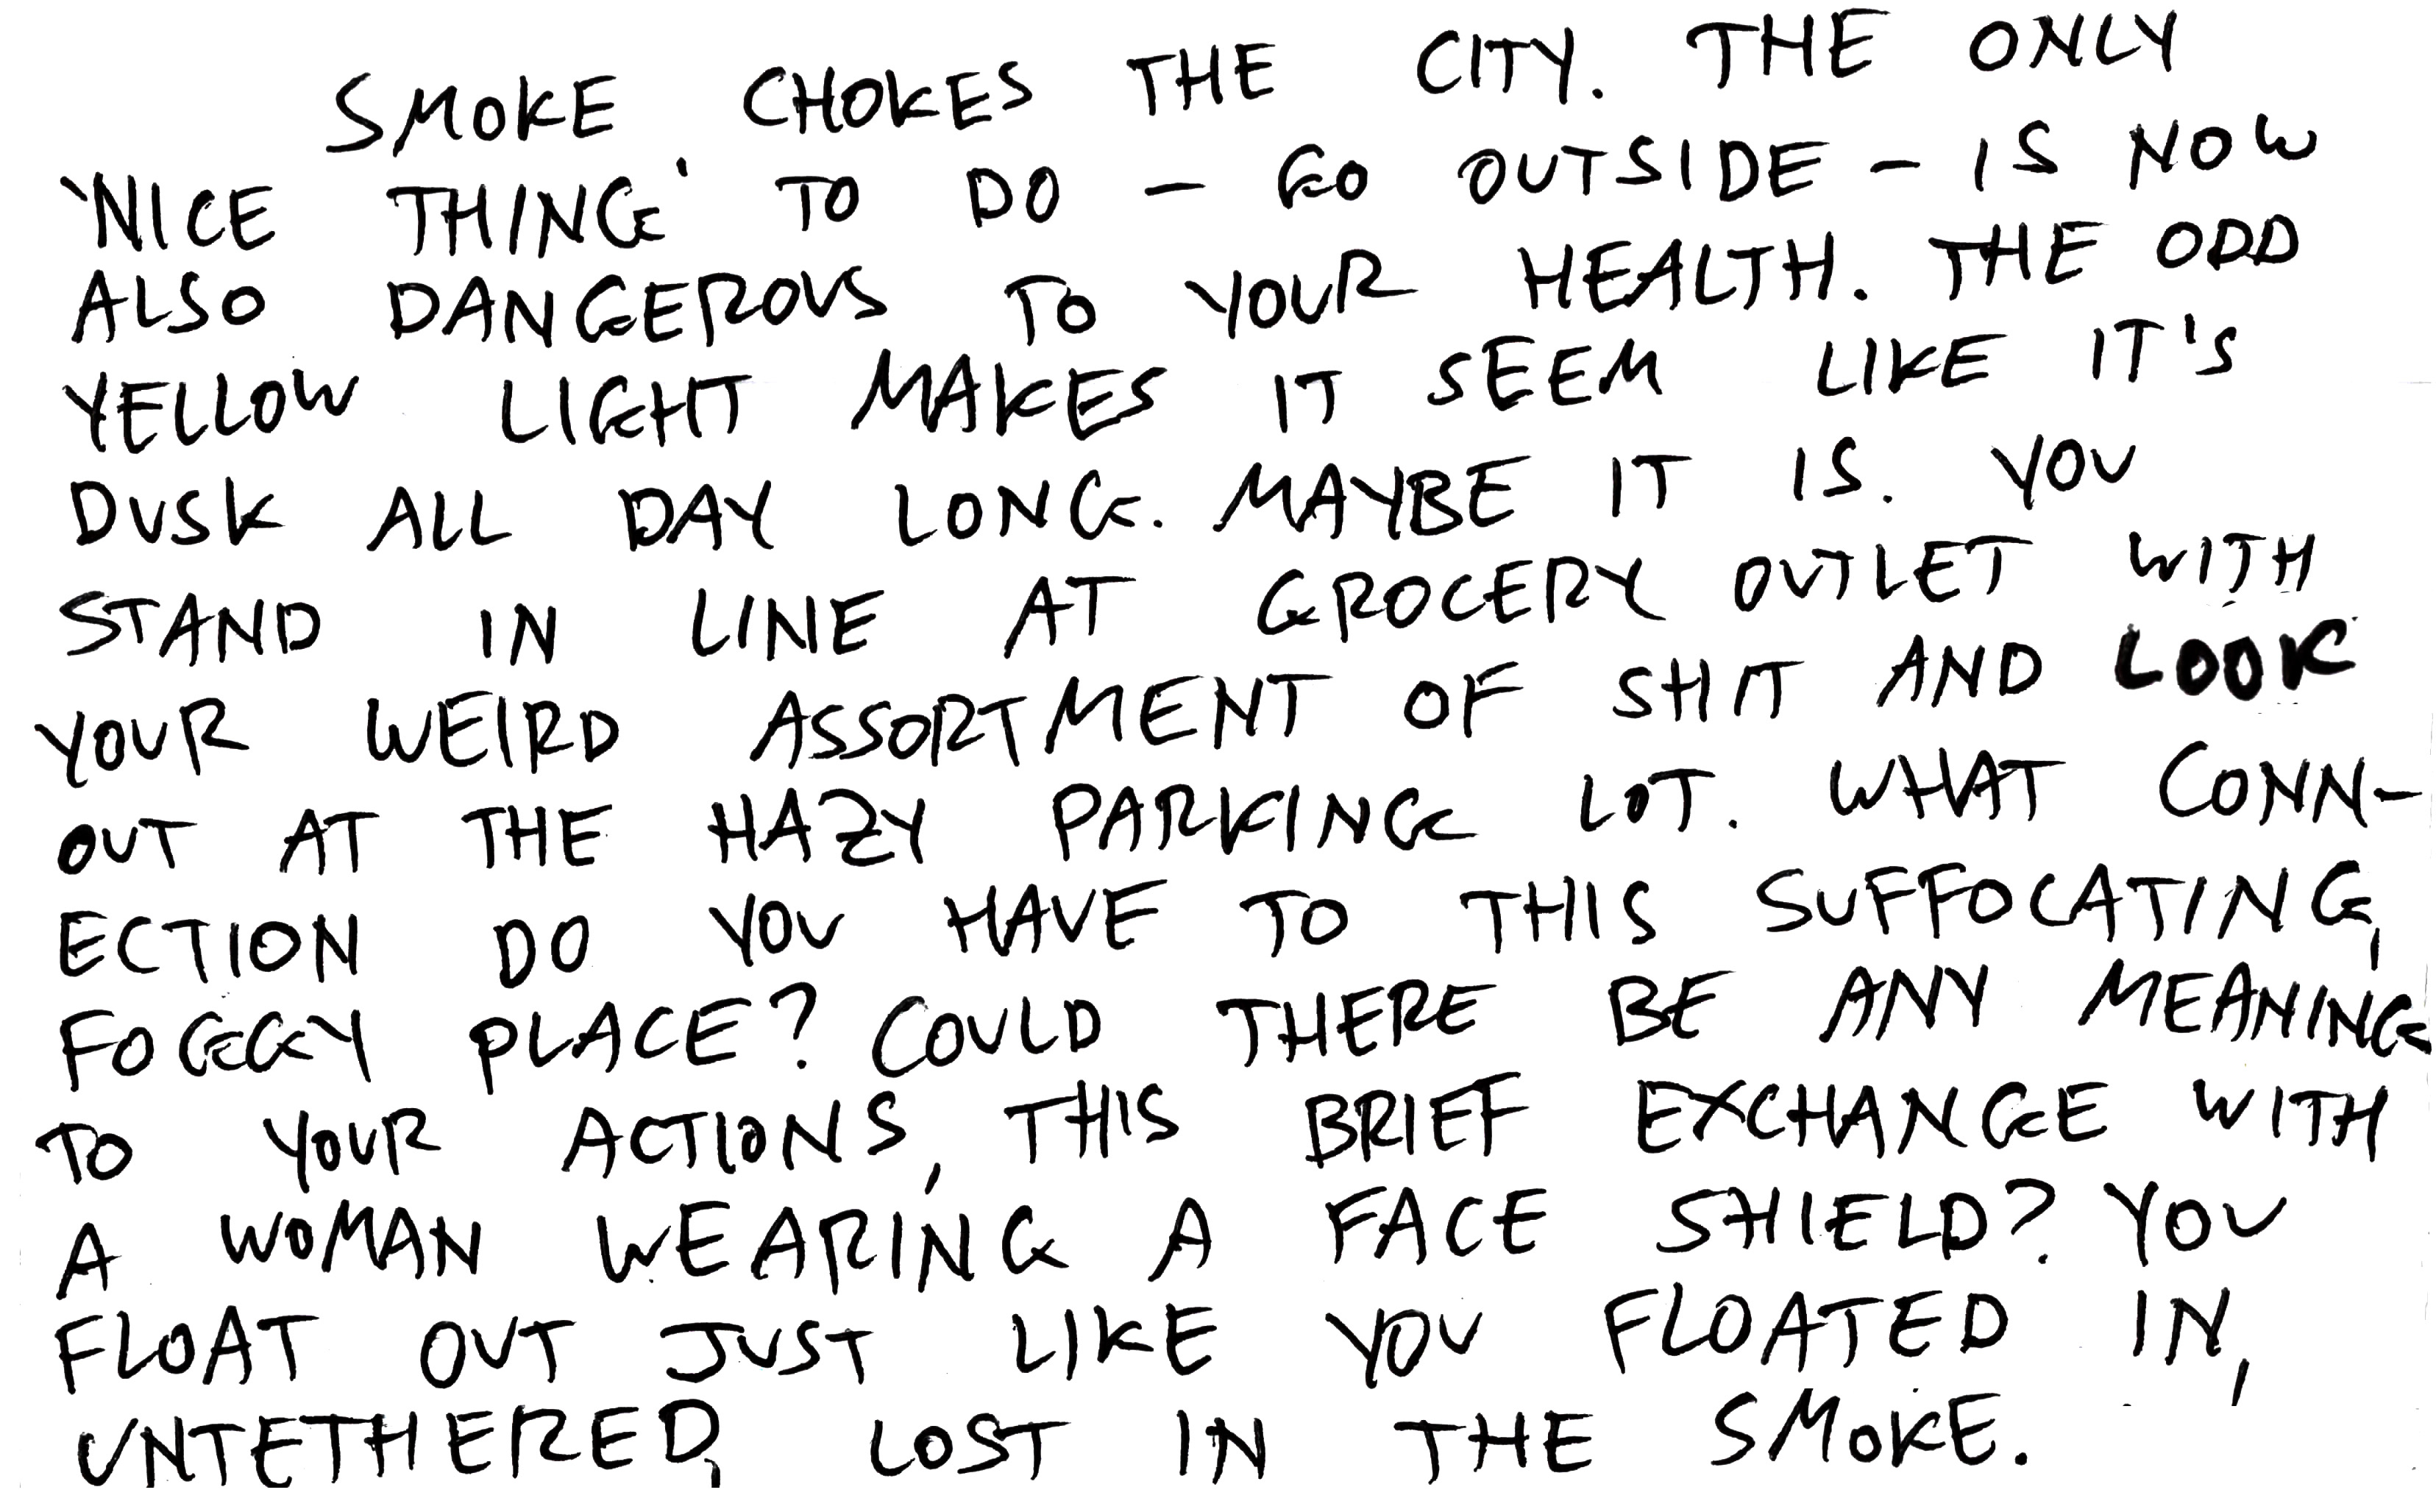 SMOKE CHOKES THE CITY. THE ONLY
'NICE THING' TO DO — GO OUTSIDE — IS NOW
ALSO DANGEROUS TO YOUR HEALTH. THE ODD
YELLOW LIGHT MAKES IT SEEM LIKE IT'S
DUSK ALL DAY LONG. MAYBE IT IS. YOU
STAND IN LINE AT GROCERY OUTLET WITH
YOUR WEIRD ASSORTMENT OF SHIT AND LOOK
OUT AT THE HAZY PARKING LOT. WHAT CONN-
ECTION DO YOU HAVE TO THIS SUFFOCATING,
FOGGY PLACE? COULD THERE BE ANY MEANING
TO YOUR ACTIONS, THIS BRIEF EXCHANGE WITH
A WOMAN WEARING A FACE SHIELD? YOU
FLOAT OUT JUST LIKE YOU FLOATED IN,
UNTETHERED, LOST IN THE SMOKE.